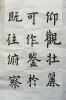 仰觀壯麗
可作鑒於
既往俯察